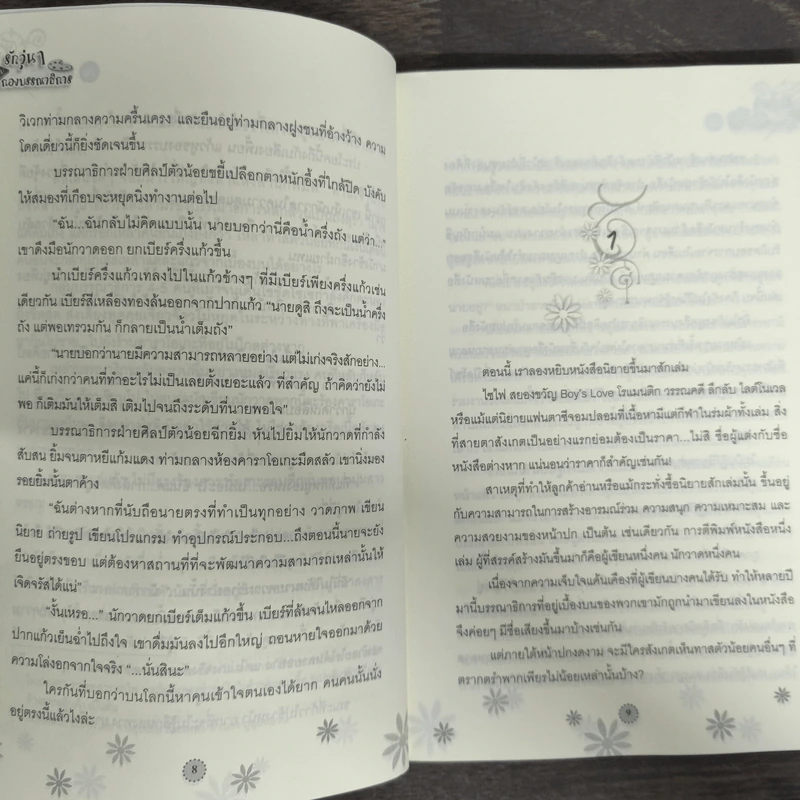 รักวุ่นๆ
กองบรรณาธิการ
วิเวกท่ามกลางความครื้นเครง และยืนอยู่ท่ามกลางฝูงชนที่อ้างว้าง ความ
โดดเดี่ยวนี้ก็ยิ่งชัดเจนขึ้น
บรรณาธิการฝ่ายศิลป์ตัวน้อยขยี้เปลือกตาหนักอึ้งที่ใกล้ปิด บังคับ
ให้สมองที่เกือบจะหยุดนิ่งทำงานต่อไป
“ฉัน...ฉันกลับไม่คิดแบบนั้น นายบอกว่านี่คือน้ำครึ่งถัง แต่ว่า...”
เขาดึงมือนักวาดออก ยกเบียร์ครึ่งแก้วขึ้น
นำเบียร์ครึ่งแก้วเทลงไปในแก้วข้างๆ ที่มีเบียร์เพียงครึ่งแก้วเช่น
เดียวกัน เบียร์สีเหลืองทองล้นออกจากปากแก้ว “นายดูสิ ถึงจะเป็นน้ำครึ่ง
ถัง แต่พอเทรวมกัน ก็กลายเป็นน้ำเต็มถัง”
“นายบอกว่านายมีความสามารถหลายอย่าง แต่ไม่เก่งจริงสักอย่าง...
แค่นี้ก็เก่งกว่าคนที่ทำอะไรไม่เป็นเลยตั้งเยอะแล้ว ที่สำคัญ ถ้าคิดว่ายังไม่
พอ ก็เติมมันให้เต็มสิ เติมไปจนถึงระดับที่นายพอใจ”
บรรณาธิการฝ่ายศิลป์ตัวน้อยฉีกยิ้ม หันไปยิ้มให้นักวาดที่กำลัง
สับสน ยิ้มจนตาหยีแก้มแดง ท่ามกลางห้องคาราโอเกะมืดสลัว เขานิ่งมอง
รอยยิ้มนั้นตาค้าง
“ฉันต่างหากที่นับถือนายตรงที่ทำเป็นทุกอย่าง วาดภาพ เขียน
นิยาย ถ่ายรูป เขียนโปรแกรม ทำอุปกรณ์ประกอบ...ถึงตอนนี้นายจะยัง
ยืนอยู่ตรงขอบ แต่ต้องหาสถานที่ที่จะพัฒนาความสามารถเหล่านั้นให้
เจิดจรัสได้แน่”
“งั้นเหรอ...” นักวาดยกเบียร์เต็มแก้วขึ้น เบียร์ที่ล้นจนไหลออกจาก
ปากแก้วเย็นฉ่ำไปถึงใจ เขาดื่มมันลงไปอึกใหญ่ ถอนหายใจออกมาด้วย
ความโล่งอกจากใจจริง “...นั่นสินะ”
ใครกันที่บอกว่าบนโลกนี้หาคนเข้าใจตนเองได้ยาก คนคนนั้นนั่ง
อยู่ตรงนี้แล้วไงล่ะ
8
1
ตอนนี้ เราลองหยิบหนังสือนิยายขึ้นมาสักเล่ม
ไซไฟ สยองขวัญ Boy's Love โรแมนติก วรรณคดี ลึกลับ ไลต์โนเวล
หรือแม้แต่นิยายแฟนตาซีจอมปลอมที่เนื้อหามีแต่กีฬาในร่มผ้าทั้งเล่ม สิ่ง
ที่สายตาสังเกตเป็นอย่างแรกย่อมต้องเป็นราคา...ไม่สิ ชื่อผู้แต่งกับชื่อ
หนังสือต่างหาก แน่นอนว่าราคาก็สำคัญเช่นกัน!
สาเหตุที่ทำให้ลูกค้าอ่านหรือแม้กระทั่งซื้อนิยายสักเล่มนั้น ขึ้นอยู่
กับความสามารถในการสร้างอารมณ์ร่วม ความสนุก ความเหมาะสม และ
ความสวยงามของหน้าปก เป็นต้น เช่นเดียวกัน การตีพิมพ์หนังสือหนึ่ง
เล่ม ผู้ที่สรรค์สร้างมันขึ้นมาก็คือผู้เขียนหนึ่งคน นักวาดหนึ่งคน
เนื่องจากความเจ็บใจแค้นเคืองที่ผู้เขียนบางคนได้รับ ทำให้หลายปี
มานี้บรรณาธิการที่อยู่เบื้องบนของพวกเขามักถูกนำมาเขียนลงในหนังสือ
จึงค่อยๆ มีชื่อเสียงขึ้นมาบ้างเช่นกัน
แต่ภายใต้หน้าปกงดงาม จะมีใครสังเกตเห็นทาสตัวน้อยคนอื่นๆ ที่
ตรากตรำพากเพียรไม่น้อยเหล่านั้นบ้าง?
9